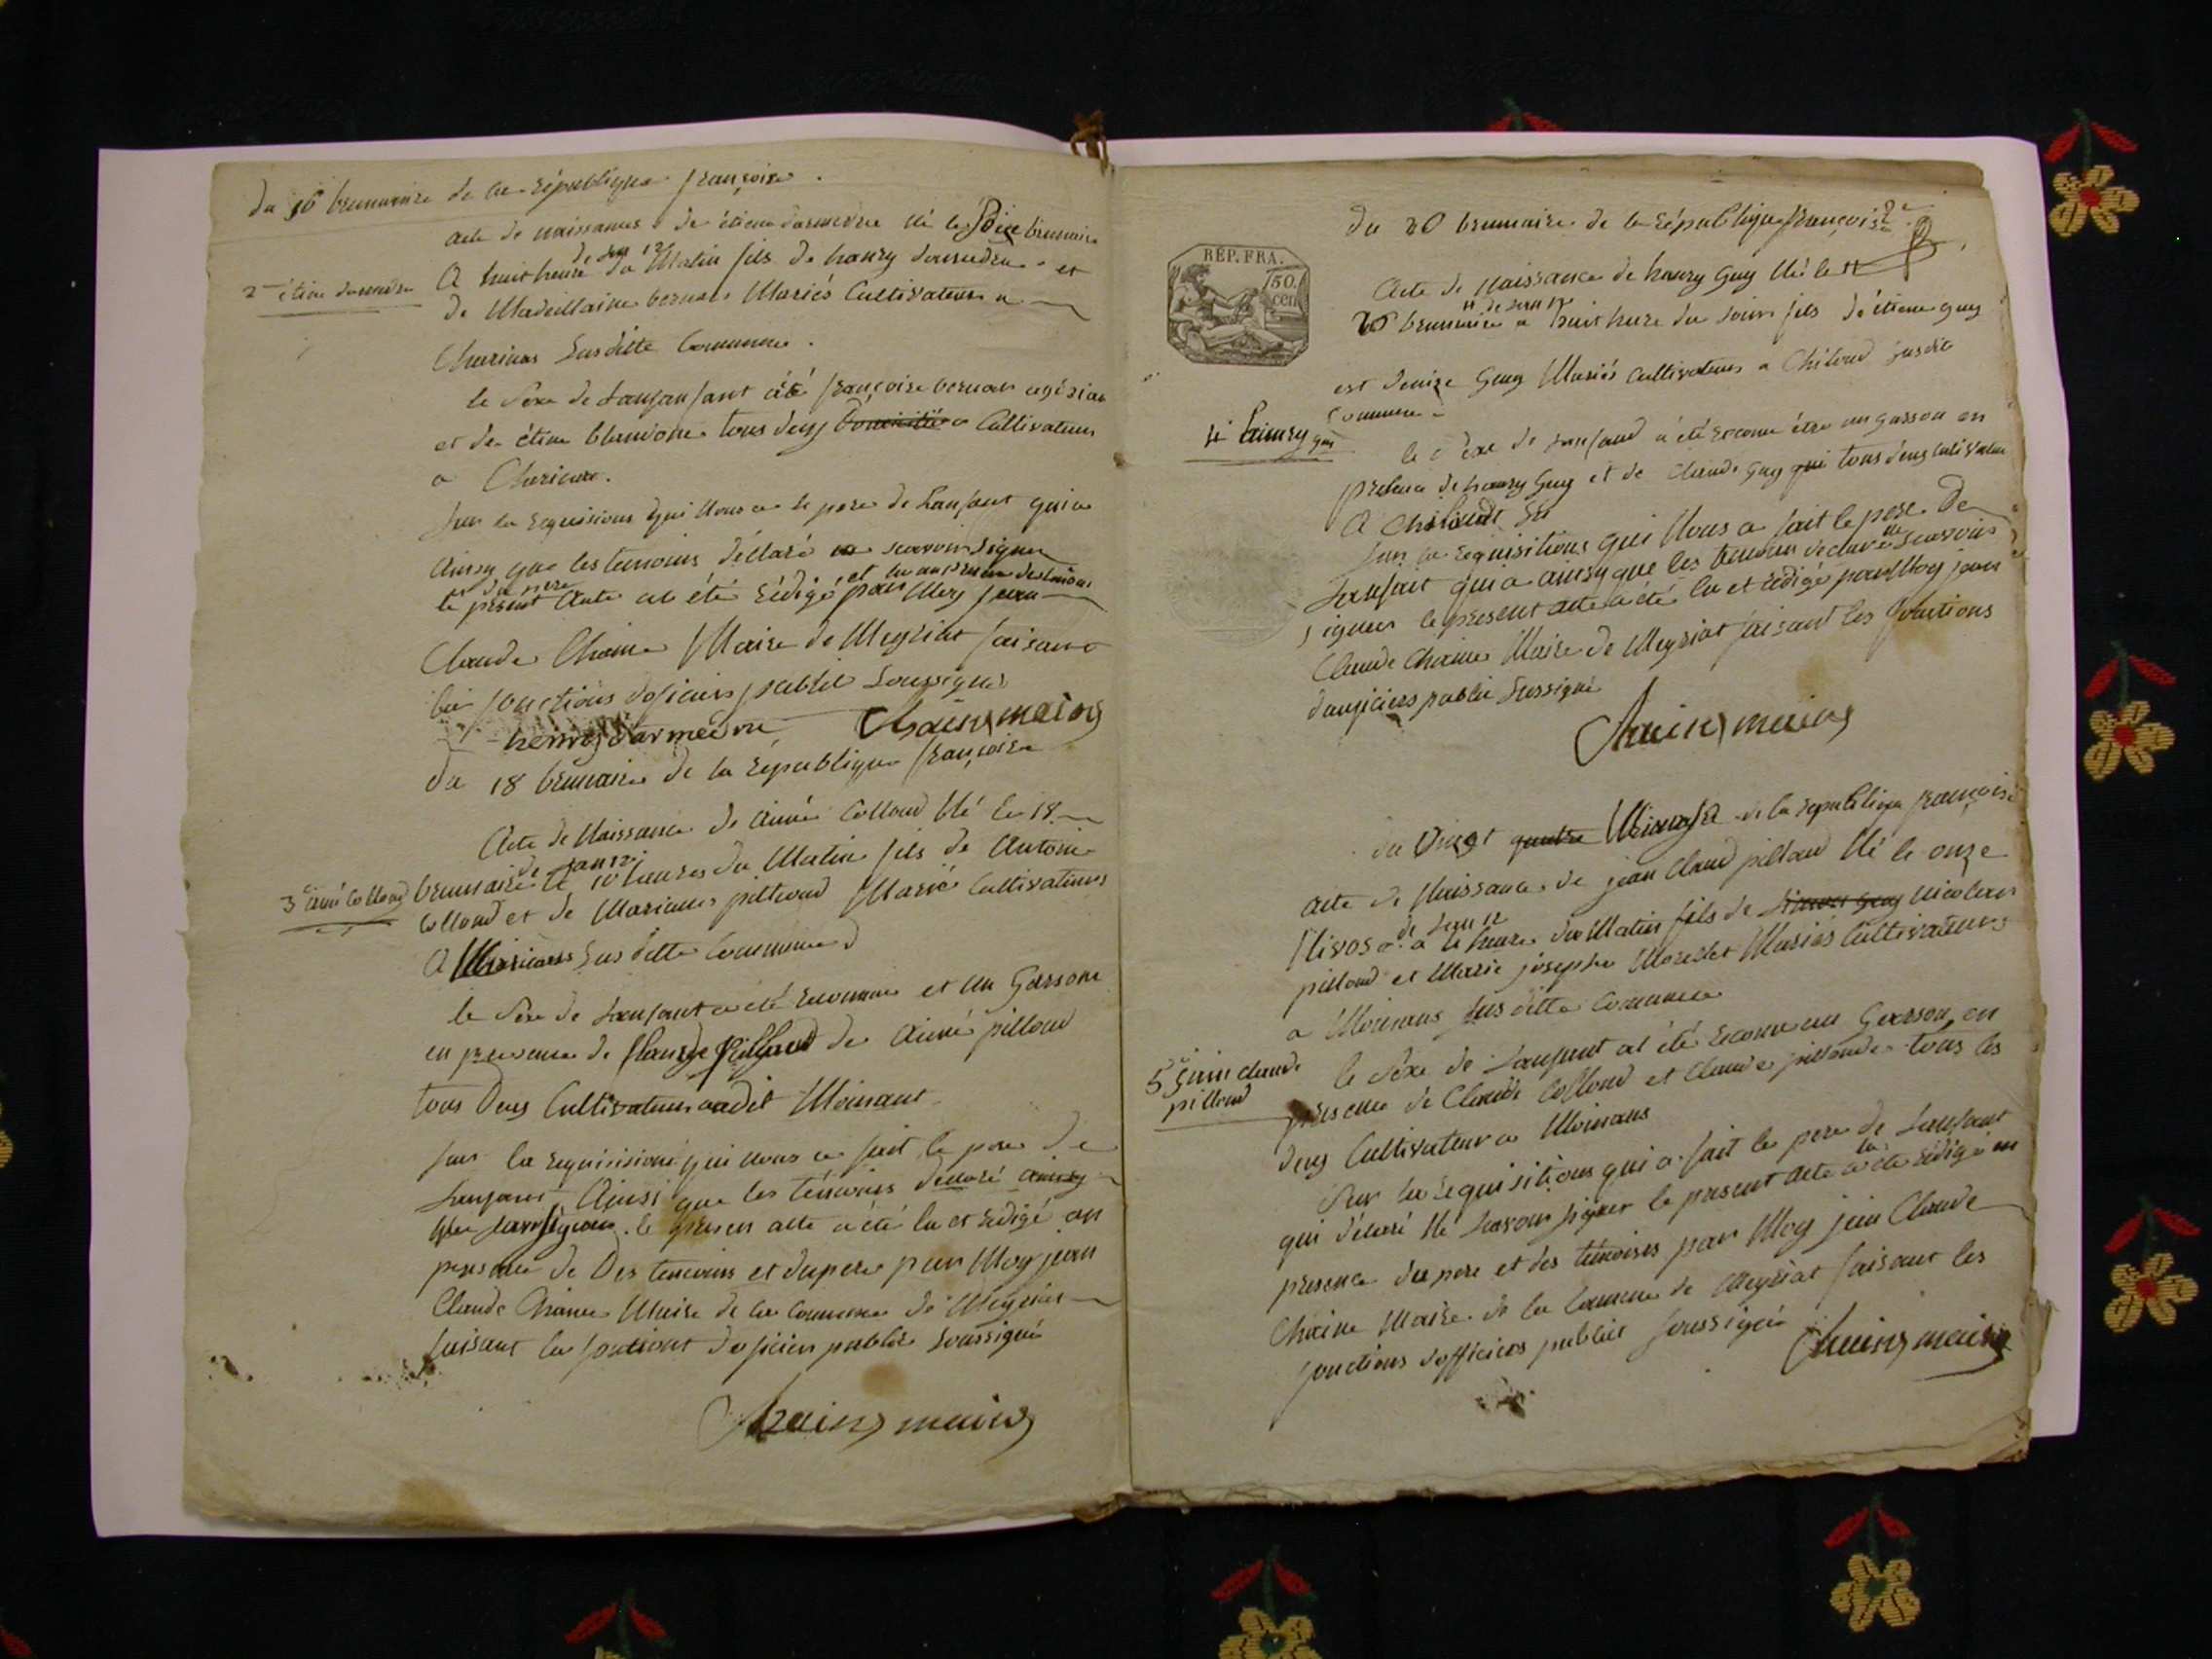 du 16 brumaire de la république françoise.
acte de naissance de étiene darmedru né le brumaire
de lan 12
2e étiene darmedru
A huit heure du Matin fils de hanry darmedru et
de Madeillaine bernar Mariés Cultivateurs a
Charinas Susditte Commune.
le Sexe de Lanfant été françoise bernar
et de étiene blandone tous deux Cultivateurs
a
Sur la requisisions qui Nous a le pere de Lanfant qui a
Ainsy que les temoins déclaré ne scavoir signer
et du pere des temoins
le présent Acte at été rédigé par Moy jean
Claude Chaine Maire de Meyriat faisant
les fonctions doficiers publie Soussigné
henry darmedru Chaine maire
du 18 brumaire de la république françoise
Acte de Naissance de Aimé Collond Né le 18
de lan 12
3e aimé Collond
brumaire le 10 heures du Matin fils de Antoine
Collond et de Mariane pilloud Marié Cultivateurs
A Susditte Commune
le Sexe de Lanfant a été reconnue et un Garsone
en presence de de Aimé pilloud
tous Deux Cultivateurs audit Moinans
Sur la requisisions qui nous a fait le pere de
Lanfant Ainsi que les témoins declaré ainsy
le presen acte a été lu et redigé an
presence de Des temoins et du pere par Moy jean
Claude Chaine Maire de la Commune de Meyriat
faisant les fontions doficier publie soussigné
Chaine maire
du 20 brumaire de la république françoise
RÉP. FRA.
50
cen
Acte de Naissance de hanry Guy Né le
de lan 12
20 brumaire a huit hure du soire fils de étiene guy
est denize Guy Mariés Cultivateurs a Chiloud susdit
Commune
4e hanry guy
le Sexe de lanfand a été reconu étre un garson en
presence de hanry Guy et de Claude Guy qui tous deux Cultivateur
A Chiloud
Sur la requisitions qui Nous a fait le pere De
Lanfant qui a ainsy que les temoin declaré ne Scavoir
signer le present acte a été lu et redigé par Moy jean
Claude Chaine Maire de Meyriat faisant les fonctions
dauficiers publie Sussigné
Chaine maire
du Vingt quatre de la republique françoise
acte de Naissance de jean Claud pilloud Né le onze
de lan 12
Nivos a heure du Matin fils de nicolas
pilloud et Marie josephe Morellet Mariés Cultivateurs
a Moinans Susditte Commune
5e jean claude
pilloud
le Sexe de Lanfant at été reconu un Garson en
presence de Claude Collond et Claude pilloud tous les
deux Cultivateur a Moinans
Sur la requisitions qui a fait le pere de Lanfant
lu
qui déclaré Né Scavoir signer le present acte a été rédigé en
presence du pere et des témoins par Moy jean Claude
Chaine Maire de la Commune de Meyriat faisant les
fonctions dofficiers publies soussigné
Chaine maire